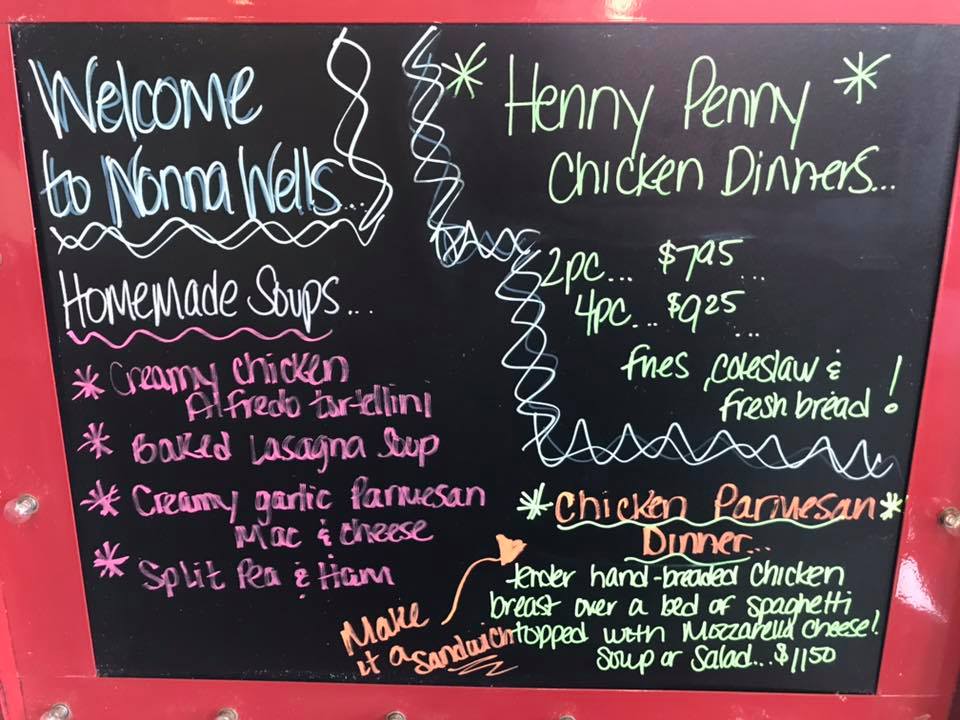 Welcome
to Nonna Wells...
Homemade Soups...
* Creamy chicken
Alfredo tortellini
* Baked Lasagna Soup
* Creamy garlic Parmesan
Mac & cheese
* Split Pea & Ham
* Henny Penny *
Chicken Dinners...
2pc... $7.95 ...
4pc... $9.25 ...
fries, coleslaw &
fresh bread!
*Chicken Parmesan*
Dinner...
tender hand-breaded chicken
breast over a bed of spaghetti
topped with Mozzarella cheese!
Soup or Salad...$11.50
Make
it a sandwich